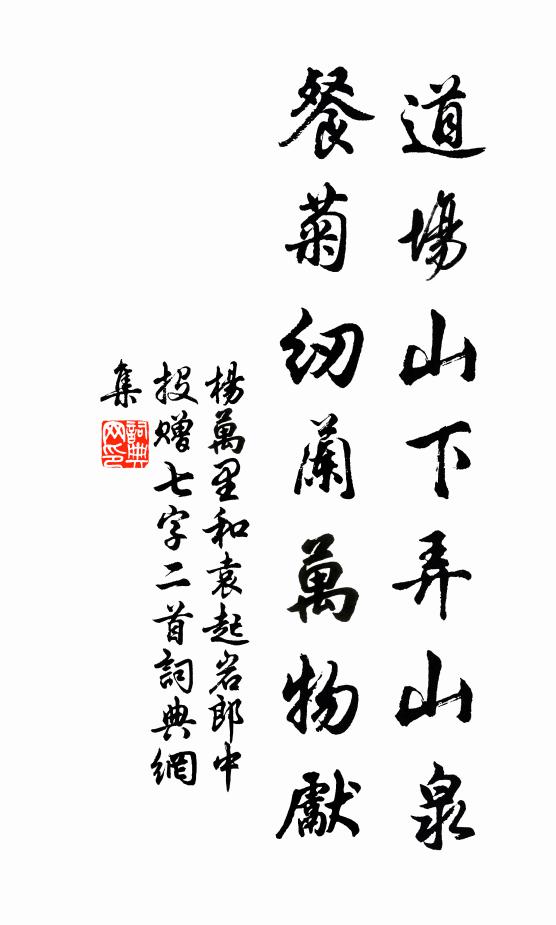 道場山下弄山泉
餐菊纫蘭萬物獻
楊萬里和袁起岩郎中
投贈七字二首詞典網
集
詞典
网印